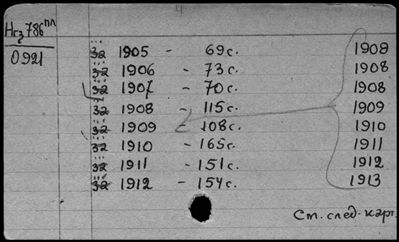 Нгз 786пл
0921
32 1905 - 69с. 1908
32 1906 - 73с. 1908
32 1907 - 70с. 1908
32 1908 - 115с. 1909
32 1909 - 108с. 1910
32 1910 - 165с. 1911
32 1911 - 151с. 1912
32 1912 - 154с. 1913
Ст. след. карт.